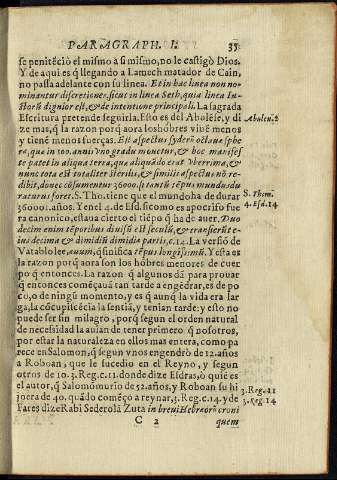 PARAGRAPH. I. 35
se penitẽciò el mismo à si mismo, no le castigò Dios.
Y de aqui es q̃ llegando a Lamech matador de Cain,
no passa adelante con su linea. Et in hac linea non no-
minantur discretione, sicut in linea Seth, quia linea Iu-
storũ dignior est, & de intentione principali. La sagrada
Escritura pretende seguirla. Esto es del Abulẽse, y di
ze mas, q̃ la razon porq̃ aora los hõbres vivẽ menos
y tienẽ menos fuerças. Est aspectus syderũ octauæ sphę
ra, qua in 100. annis vno gradu monetur, & hoc manifes
te patet in aliqua terra, qua aliquãdo erat vberrima, &
nunc tota est totaliter sterilis, & similis aspectus nõ re-
dibit, donec cõsumentur 36000. & tantũ tẽpus mundus du
raturus foret. S. Tho. tiene que el mundo ha de durar
36000. años. Y en el 4. de Esd. si como es apocrifo fue
ra canonico, estaua cierto el tiẽpo q̃ ha de auer. Duo
decim enim tẽporibus divisũ est seculũ, & transierũt e-
ius decima & dimidiũ dimidia partis, c. 14. La versiõ de
Vatablo lee, auum, q̃ sinifica tẽpus longissimũ. Y esta es
la razon porq̃ aora son los hõbres menores de cuer
po q̃ entonces. La razon q̃ algunos dà para prouar
q̃ entonces començauã tan tarde a engẽdrar, es de po
co, o de ningũ momento, y es q̃ aunq̃ la vida era lar
ga, la cõcupiscẽcia la sentiã, y tenian tarde: y esto no
puede ser sin milagro, porq̃ segun el orden natural
de necessidad la auian de tener primero q̃ nosotros,
por estar la naturaleza en ellos mas entera, como pa
rece en Salomon, q̃ segun vnos engendrò de 12. años
a Roboan, que le sucedio en el Reyno, y segun
otros de 10. 3. Reg. c. 11. donde dize Esdras, ò quiẽ es
el autor, q̃ Salomõ murio de 52. años, y Roboan su hi
jo era de 40. quãdo comẽço a reynar, 3. Reg. c. 14. y de
Fares dize Rabi Sederolã Zuta in brevi Hebræorũ croni
C 2 quem
Abulen. 2
S. Thom.
4. Esd. 14
3. Reg. 11
3. Reg. 14